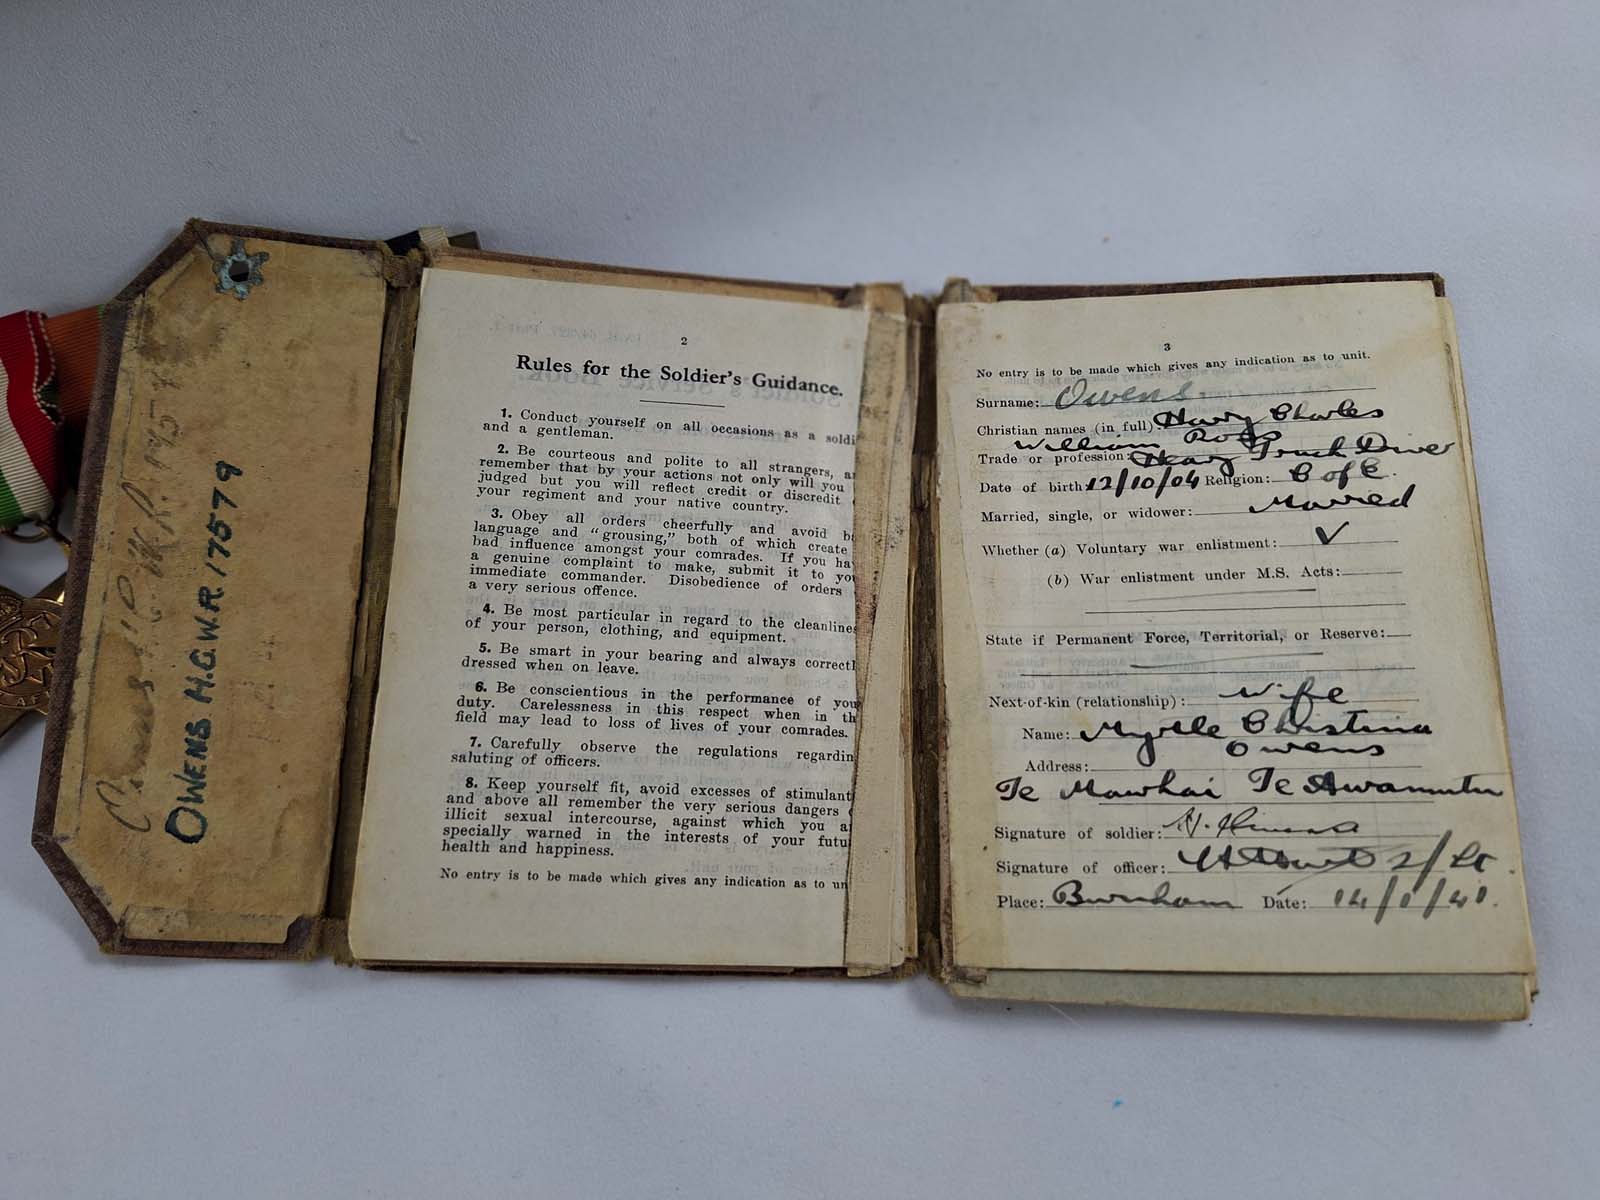 OWENS. H.C.W.R. 17579
2
Rules for the Soldier's Guidance.
1. Conduct yourself on all occasions as a soldi
and a gentleman.
2. Be courteous and polite to all strangers, a
remember that by your actions not only will you
judged but you will reflect credit or discredit
your regiment and your native country.
3. Obey all orders cheerfully and avoid b
language and "grousing," both of which create
bad influence amongst your comrades. If you ha
a genuine complaint to make, submit it to yo
immediate commander. Disobedience of orders
a very serious offence.
4. Be most particular in regard to the cleanline
of your person, clothing, and equipment.
5. Be smart in your bearing and always correctl
dressed when on leave.
6. Be conscientious in the performance of you
duty. Carelessness in this respect when in th
field may lead to loss of lives of your comrades.
7. Carefully observe the regulations regardin
saluting of officers.
8. Keep yourself fit, avoid excesses of stimulant
and above all remember the very serious dangers
illicit sexual intercourse, against which you a
specially warned in the interests of your futu
health and happiness.
No entry is to be made which gives any indication as to un
3
No entry is to be made which gives any indication as to unit.
Surname: Owens.
Christian names (in full) Harry Charles
William Ross
Trade or profession: Heavy Truck Driver
Date of birth 12/10/04 Religion: C of E.
Married, single, or widower: Married
Whether (a) Voluntary war enlistment: ✓
(b) War enlistment under M.S. Acts:
State if Permanent Force, Territorial, or Reserve:
Next-of-kin (relationship): Wife
Name: Myrtle Christina
Owens
Address:
Te Mawhai Te Awamutu
Signature of soldier:
Signature of officer: 2/Lt
Place: Burnham Date: 14/1/41.